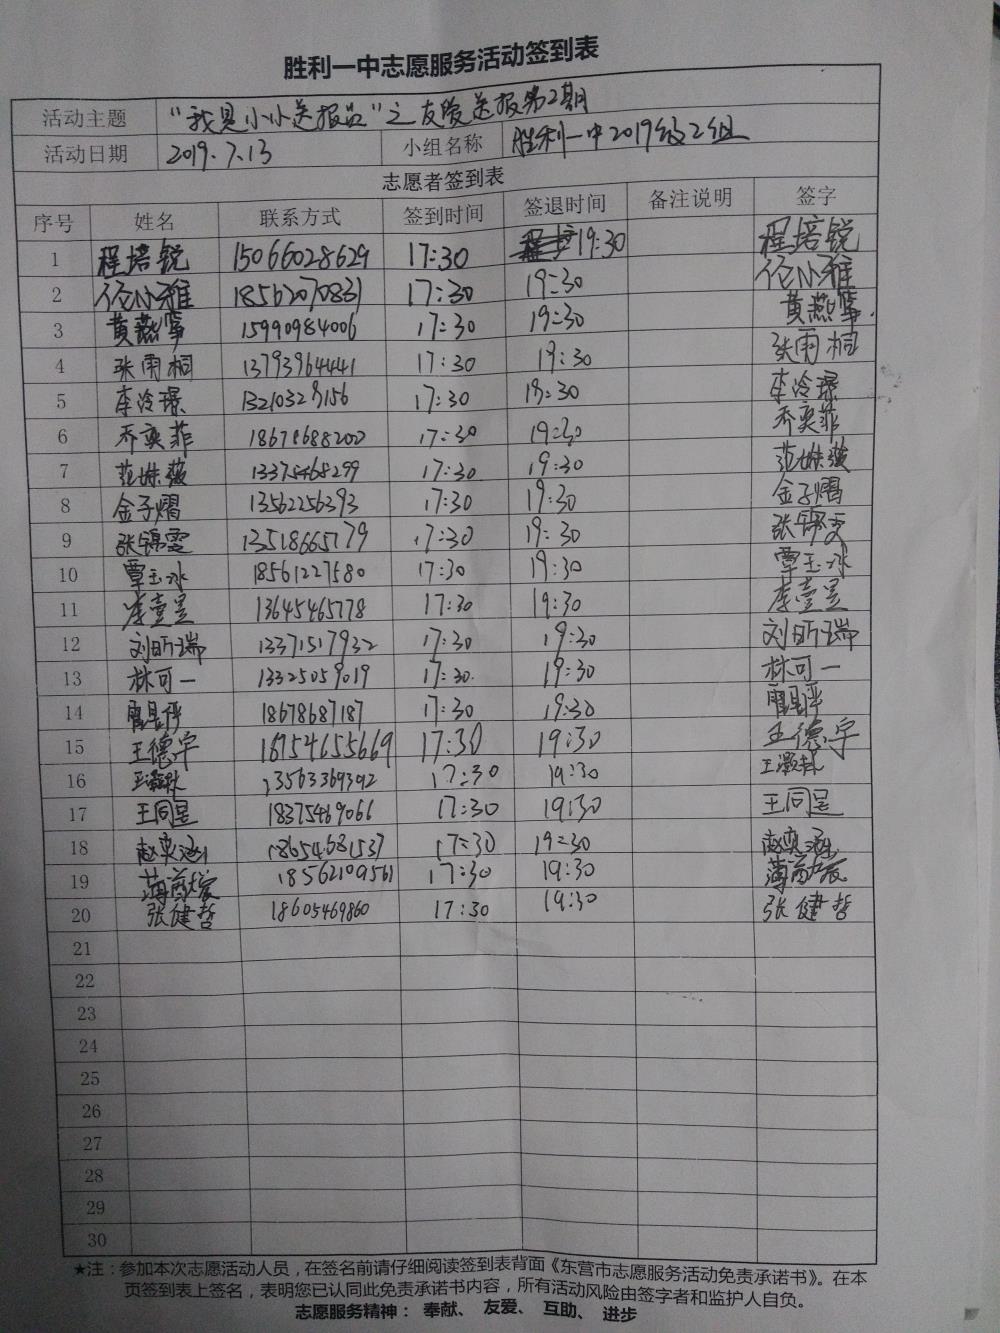 胜利一中志愿服务活动签到表
活动主题 "我是小小送报员"之友爱送报第2期
活动日期 2019.7.13 小组名称 胜利一中2019级2组
志愿者签到表
序号 姓名 联系方式 签到时间 签退时间 备注说明 签字
1 程培锐 15066028629 17:30 19:30 程培锐
2 伦小雅 18562070831 17:30 19:30 伦小雅
3 黄燕宁 15990984006 17:30 19:30 黄燕宁
4 张雨桐 13793964441 17:30 19:30 张雨桐
5 李泠璟 17:30 19:30 李泠璟
6 乔奕菲 18678688202 17:30 19:30 乔奕菲
7 范姝薇 13375468299 17:30 19:30 范姝薇
8 金子熠 13562256393 17:30 19:30 金子熠
9 张锦雯 13518665179 17:30 19:30 张锦雯
10 覃玉冰 18561227580 17:30 19:30 覃玉冰
11 李壹昊 13645465778 17:30 19:30 李壹昊
12 刘昕瑞 13371517932 17:30 19:30 刘昕瑞
13 林可一 13325059019 17:30 19:30 林可一
14 18678687187 17:30 19:30
15 王德宇 18754655669 17:30 19:30 王德宇
16 13563369392 17:30 19:30 王灏林
17 王同是 18375469066 17:30 19:30 王同是
18 赵奕涵 18654681537 17:30 19:30 赵奕涵
19 18562109561 17:30 19:30
20 张健哲 18605469860 17:30 19:30 张健哲
21
22
23
24
25
26
27
28
29
30
★注：参加本次志愿活动人员，在签名前请仔细阅读签到表背面《东营市志愿服务活动免责承诺书》。在本
页签到表上签名，表明您已认同此免责承诺书内容，所有活动风险由签字者和监护人自负。
志愿服务精神： 奉献、 友爱、 互助、 进步